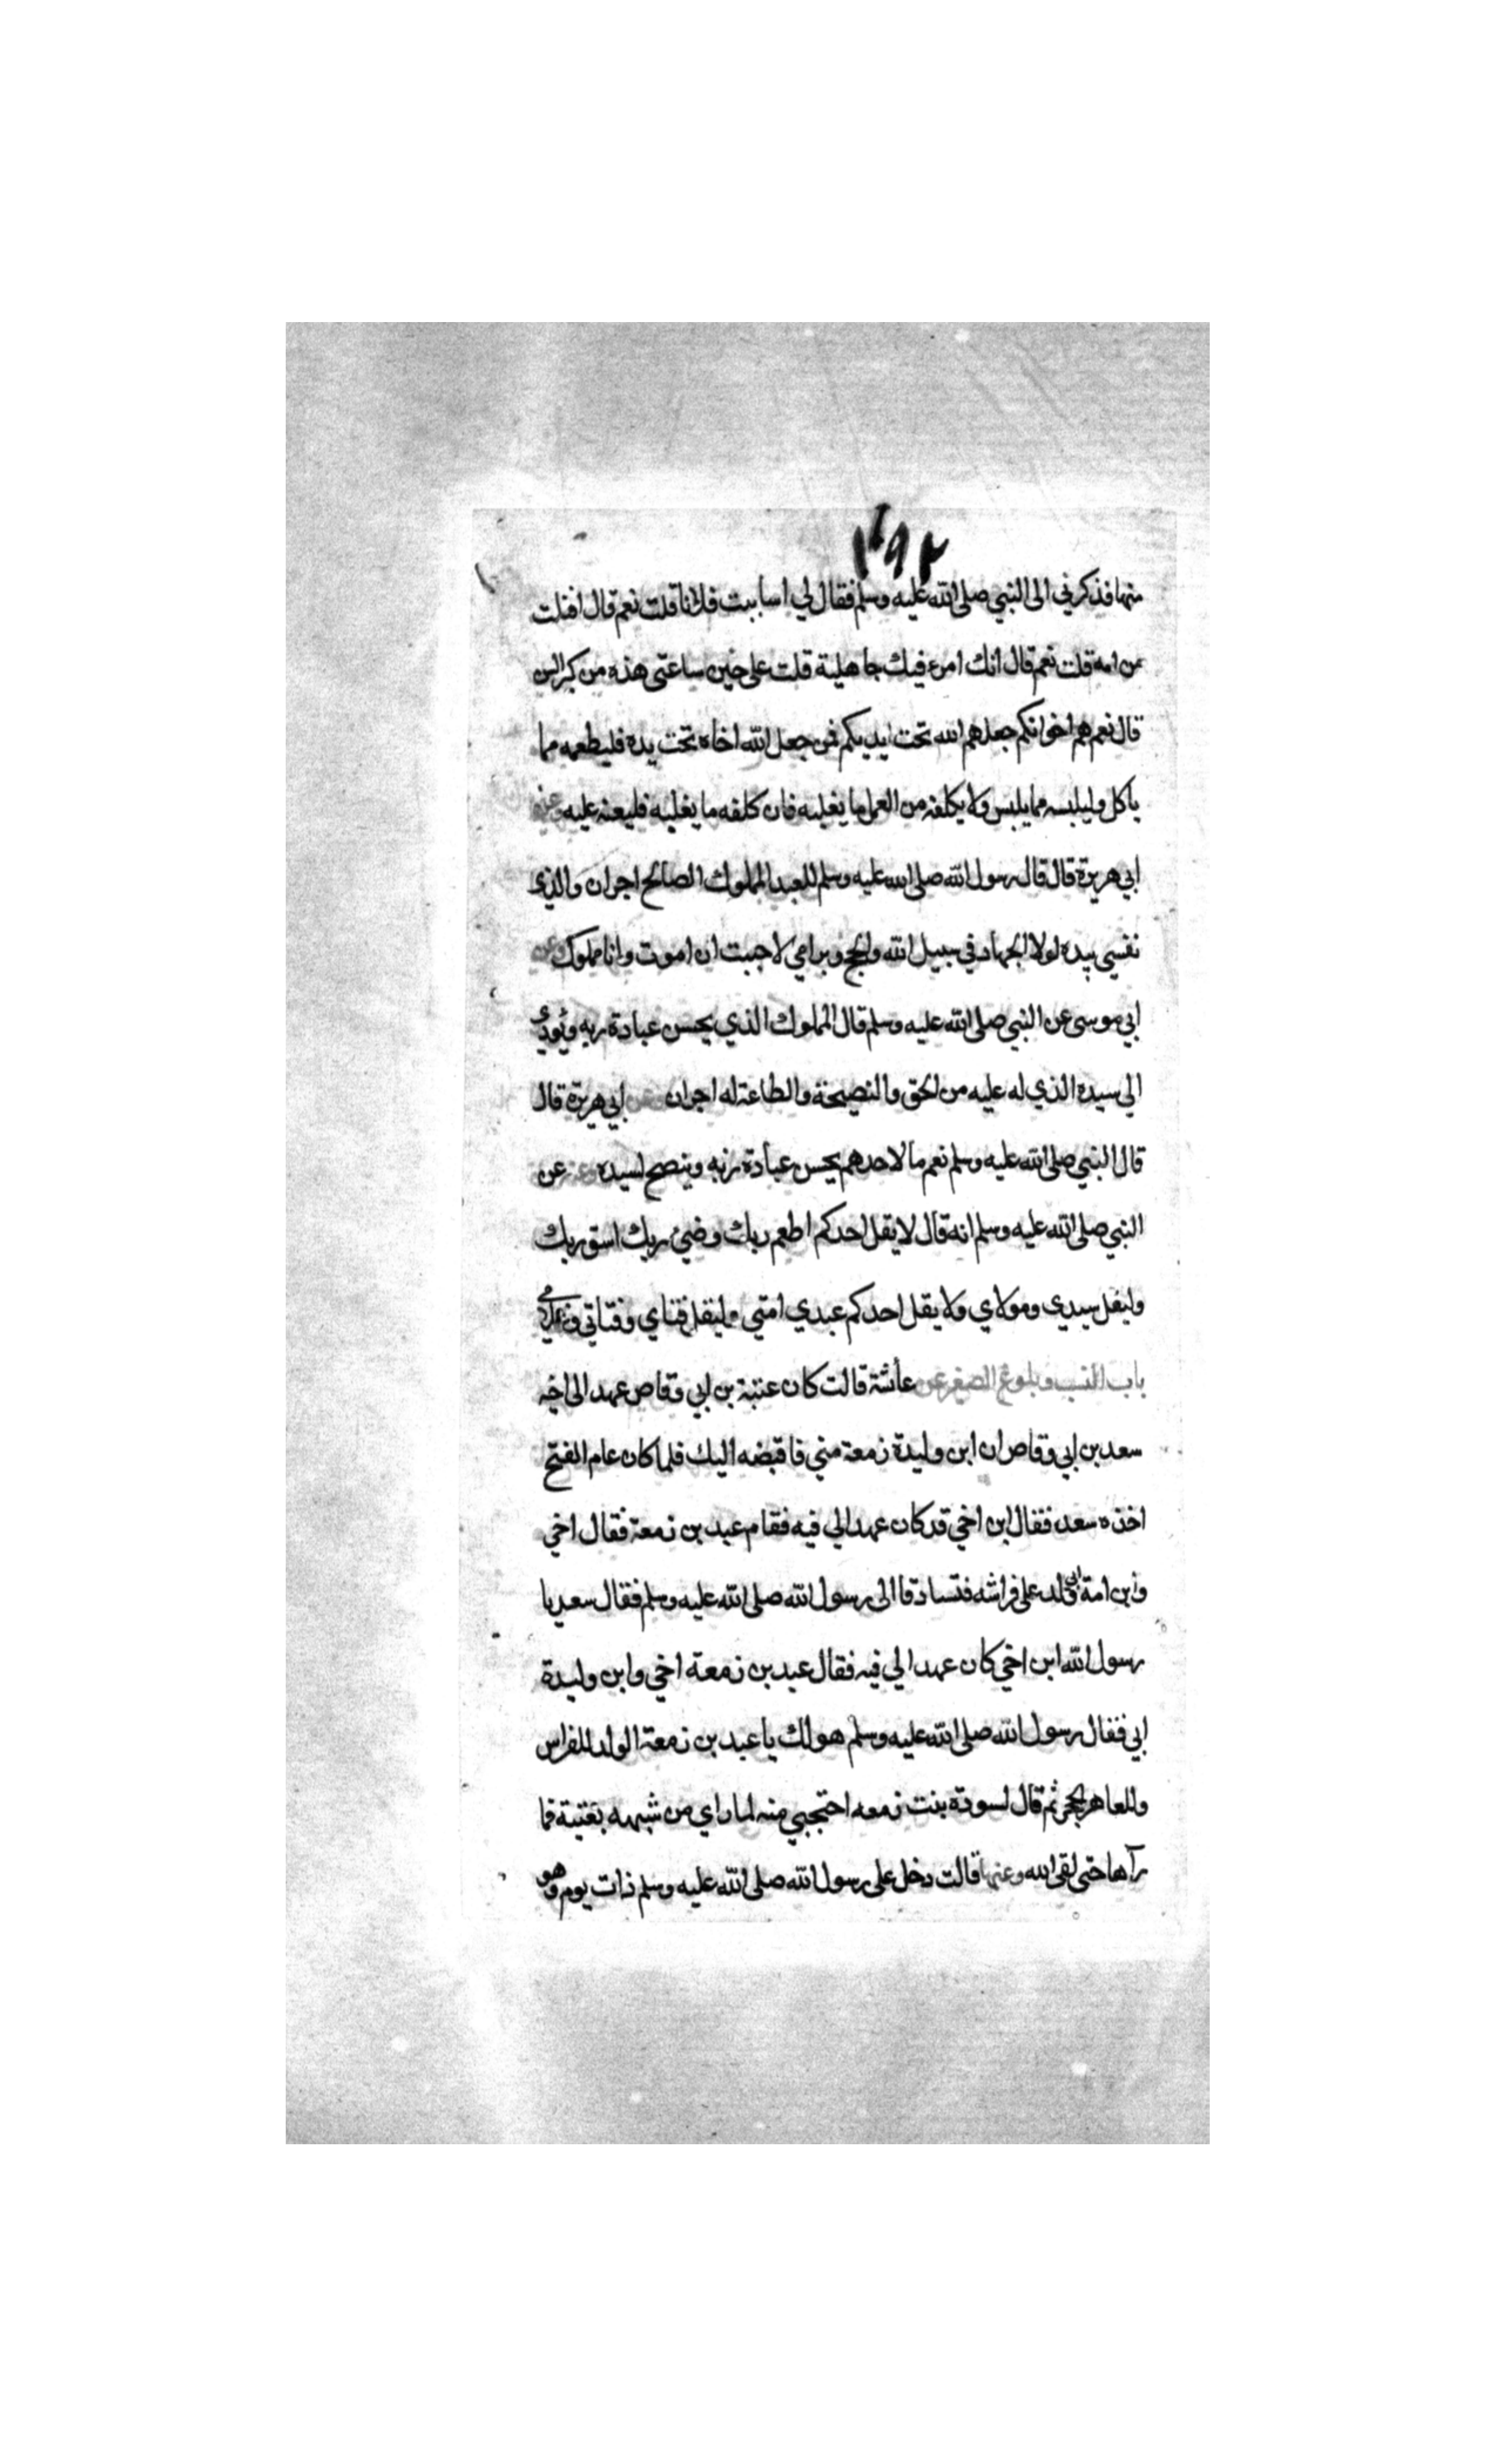 ١٦٩٢
منها فذكرني الى النبي صلى الله عليه وسلم فقال لي اساببت فلانا قلت نعم قال افنلت
من امه قلت نعم قال انك امرء فيك جاهلية قلت على حين ساعتى هذه من كبر السن
قال نعم هم اخوانكم جعلهم الله تحت ايديكم فمن جعل الله اخاه تحت يده فليطعمه مما
ياكل وليلبسه مما يلبس ولا يكلفه من العمل ما يغلبه فان كلفه ما يغلبه فليعنه عليه وعن
ابي هريرة قال قال رسول الله صلى الله عليه وسلم للعبد المملوك الصالح اجران والذي
نفسي بيده لولا الجهاد في سبيل الله والحج وبر امي لاحببت ان اموت وانا مملوك وعن
ابي موسى عن النبي صلى الله عليه وسلم قال المملوك الذي يحسن عبادة ربه ويؤدي
الى سيده الذي له عليه من الحق والنصيحة والطاعة له اجران وعن ابي هريرة قال
قال النبي صلى الله عليه وسلم نعم ما لاحدهم يحسن عبادة ربه وينصح لسيده وعنه عن
النبي صلى الله عليه وسلم انه قال لا يقل احدكم اطعم ربك وضئ ربك اسق ربك
وليقل سيدي ومولاي ولا يقل احدكم عبدي امتي وليقل فتاي وفتاتي وغلامي
باب النسب وبلوغ الصغير عن عائشة قالت كان عتبة بن ابي وقاص عهد الى اخيه
سعد بن ابي وقاص ان ابن وليدة زمعة مني فاقبضه اليك فلما كان عام الفتح
اخذه سعد فقال ابن اخي قد كان عهد الي فيه فقام عبد بن زمعة فقال اخي
وابن امة ابي ولد على فراشه فتساوقا الى رسول الله صلى الله عليه وسلم فقال سعد يا
رسول الله ابن اخي كان عهد الي فيه فقال عبد بن زمعة اخي وابن وليدة
ابي فقال رسول الله صلى الله عليه وسلم هو لك يا عبد بن زمعة الولد للفراش
وللعاهر الحجر ثم قال لسودة بنت زمعه احتجبي منه لما راى من شبهه بعتبة فما
رآها حتى لقي الله وعنها قالت دخل على رسول الله صلى الله عليه وسلم ذات يوم وهو